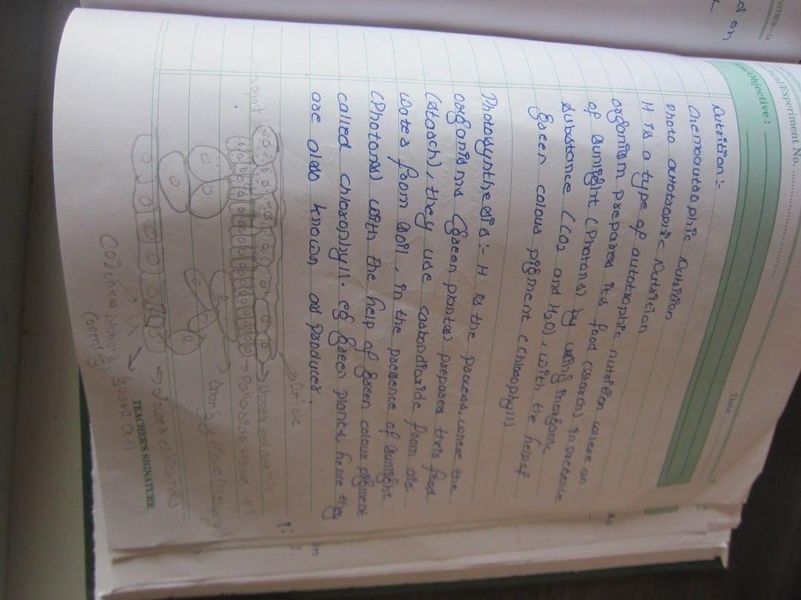 Experiment No.
Objective :
Date
Nutrition :-
Chemoautrophic Nutrition
Photo autotrophic Nutrition
It is a type of autotrophic nutrition where an
organism prepares its food (starch) in presence
of sunlight (Photons) by using inorganic
substance (CO2 and H2O), with the help of
green colour pigment (chlorophyll)
Photosynthesis :- It is the process, where the
organisms (green plants) prepares their food
(starch), they use carbondioxide from air
water from soil, in the presence of sunlight
(Photons) with the help of green colour pigment
called chlorophyll. eg green plants, hence they
are also known as producer
Cuticle
Upper epidermis
Palisade tissue
Spongy tissue
Lower epidermis
guard cell
(opening)
TEACHER'S SIGNATURE